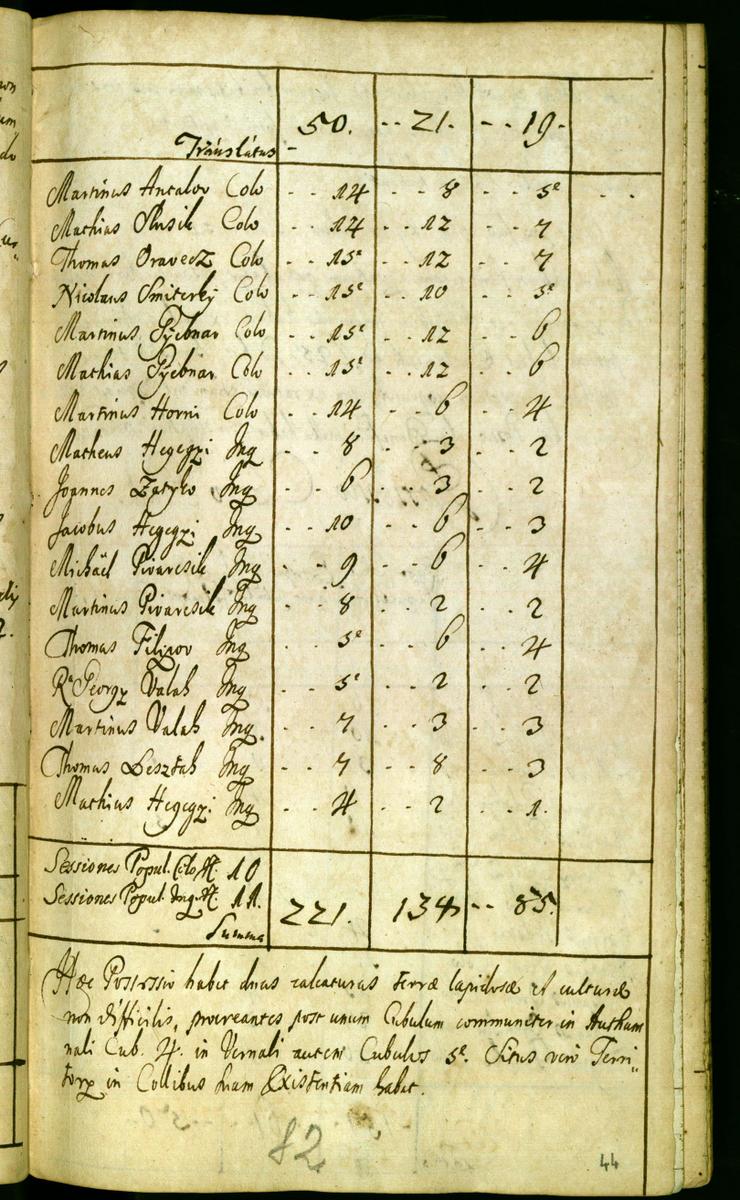 Translatus - 50. - - 21. - - 19 -
Martinus Antalov Colo - - 14 - - 8 - - 5 - -
Mathias Slusik Colo - - 14 - - 12 - - 7
Thomas Oravecz Colo - - 15 - - 12 - - 7
Nicolaus Smiterky Colo - - 15 - - 10 - - 5
Martinus Pyebnar Colo - - 15 - - 12 - - 6
Mathias Pyebnar Colo - - 15 - - 12 - - 6
Martinus Horni Colo - - 14 - - 6 - - 4
Matheus Hegegzi Inq - - 8 - - 3 - - 2
Joannes Zatyko Inq - - 6 - - 3 - - 2
Jacobus Hegegzi Inq - - 10 - - 6 - - 3
Michaël Pivarcsik Inq - - 9 - - 6 - - 4
Martinus Pivarcsik Inq - - 8 - - 2 - - 2
Thomas Filipov Inq - - 5 - - 6 - - 4
Georgy Valah Inq - - 5 - - 2 - - 2
Martinus Valah Inq. - - 7 - - 3 - - 3
Thomas Lesztah Inq - - 7 - - 8 - - 3
Mathius Hegegzi Inq - - 4 - - 2 - - 1.
Sessiones Popul. Colo 10
Sessiones Popul. Inq. 11.
Summa 221. 134 - - 85.
Hæc Possessio habet duas calcaturas terræ lapidosæ et culturæ
non difficilis, procreantes post unum Cubulum communiter in Authum
nali Cub. 4. in Vernali autem Cubulos 5. Situs vero Terri„
tory in Collibus suam Existentiam habet.
82
44